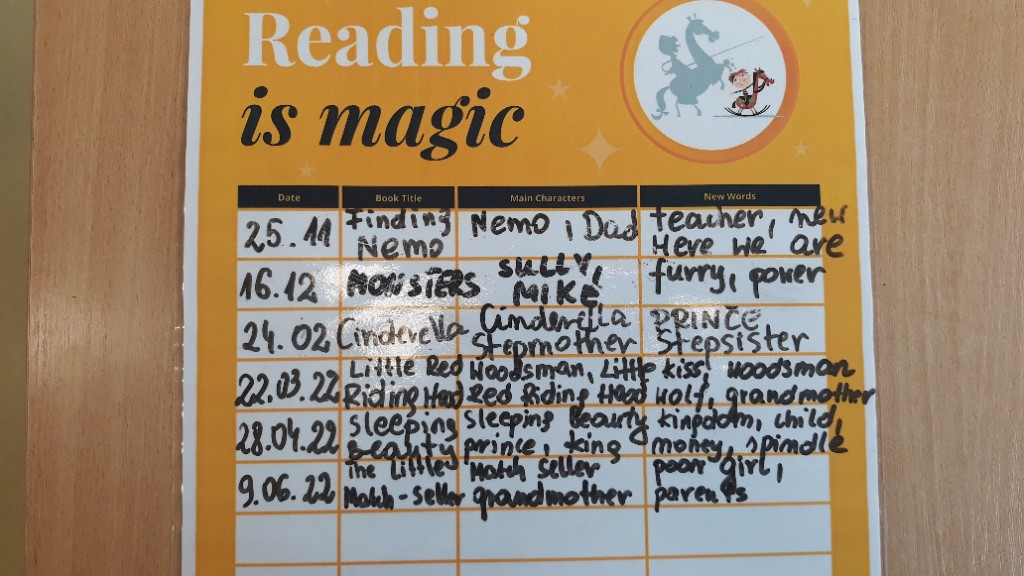 Reading
is magic
Date Book Title Main Characters New Words
25.11 Finding Nemo, Dad teacher, new
Nemo Here we are
16.12 MONSTERS SULLY, furry, power
MIKE
24.02 Cinderella Cinderella PRINCE
Stepmother Stepsister
22.03.22 Little Red Woodsman, Little kiss, woodsman
Riding Hood Red Riding Hood wolf, grandmother
28.04.22 Sleeping Sleeping Beauty kingdom, child,
Beauty prince, king money, spindle
9.06.22 The Little Match Seller poor girl,
Match-seller grandmother parents